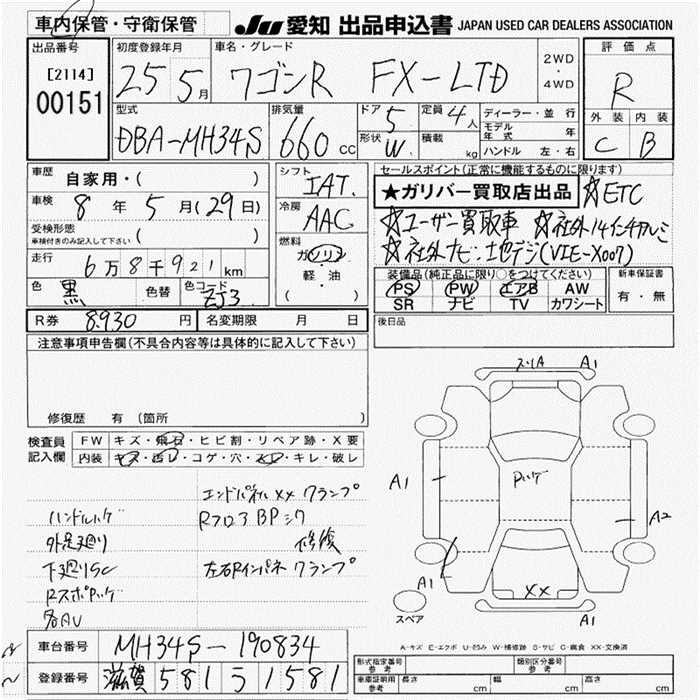 車内保管・守衛保管
JU 愛知 出品申込書 JAPAN USED CAR DEALERS ASSOCIATION
出品番号
[2114]
00151
初度登録年月
25 5月
車名・グレード
ワゴンR FX-LTD
2WD
・
4WD
評価点
R
外装 内装
C B
型式
DBA-MH34S
排気量
660 cc
ドア 5
形状 W
定員 4人
積載 kg
ディーラー・並行
モデル年式 年
ハンドル 左・右
車歴 自家用・( )
車検 8年 5月(29日)
受検形態
車検付きのみ記入して下さい ( )
走行 6万8千921km
色 黒 色替 色コード ZJ3
シフト
IAT
冷房
AAC
燃料
ガソリン
軽・油
( )
セールスポイント(正常に機能するものに限ります)
★ガリバー買取店出品 ☆ETC
☆ユーザー買取車 ☆社外14インチアルミ
☆社外ナビ・地デジ(VIE-X007)
装備品(純正品に限り○をつけてください)
PS PW エアB AW
SR ナビ TV カワシート
新車保証書
有・無
R券 8930円 名変期限 月 日
後日品
注意事項申告欄(不具合内容等は具体的に記入して下さい)
修復歴 有(箇所 )
検査員記入欄
FW キズ・飛石・ヒビ割・リペア跡・X要
内装 キズ・汚レ・コゲ・穴・スレ・キレ・破レ
エンドパネル XX クランプ
ハンドルハゲ
Rフロア BPシワ
外足廻り
修復
下廻りSC
左右Rインパネ クランプ
Rスポハゲ
各AU
スリA A1
A1
A2
A1
XX
A1
スペア
A-キズ E-エクボ U-凹み W-補修跡 S-サビ C-腐食 XX-交換済
車台番号 MH34S-190834
登録番号 滋賀 581 う 1581
形式指定番号
参考
類別区分番号
参考
車庫証明用
参考
長さ cm 幅 cm 高さ cm